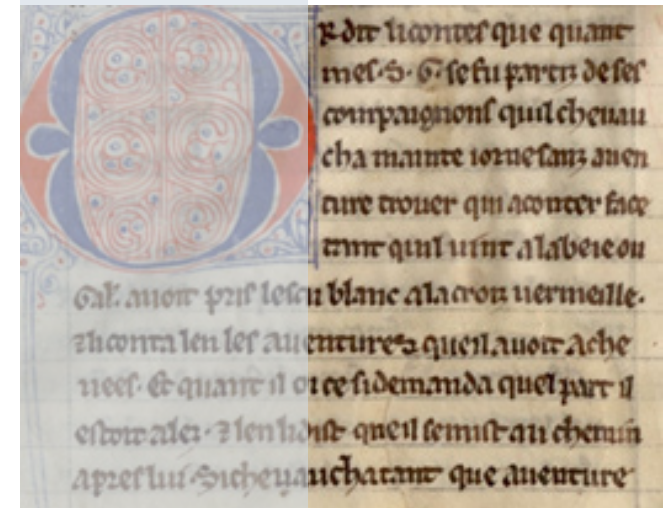 R dit li contes que quant
mes. S. G. se fu partiz de ses
compaignons quil cheuau
cha mainte iornee sanz auen
ture trouer qui a conter face
tant quil uint a labeie ou
Gal. auoit pris lescu blanc a la croiz uermeille.
⁊ li conta len les auentures que il auoit ache
uees. Et quant il oi ce si demanda quel part il
estoit alez. ⁊ len li dist que il se mist au chemin
apres lui. Si cheuaucha tant que auenture